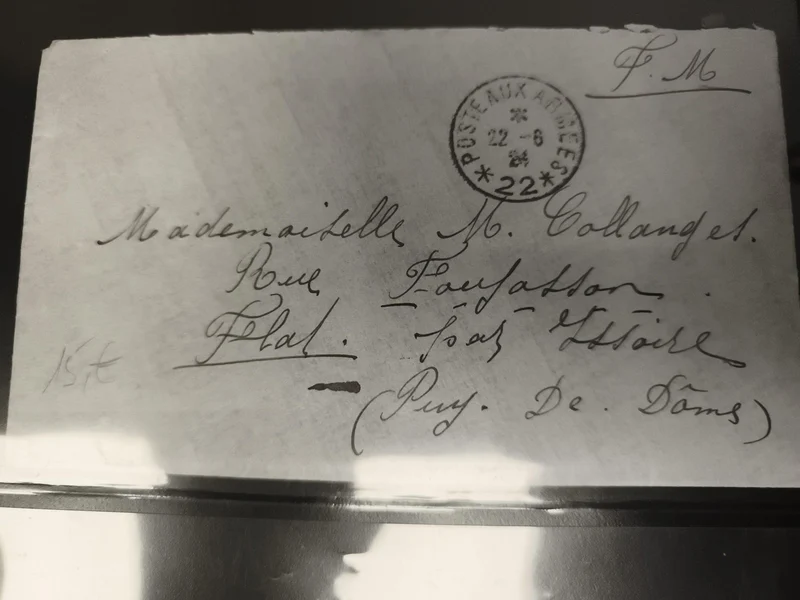 F. M
POSTE AUX ARMEES
22 - 6
24
* 22 *
Mademoiselle M. Collanget.
Rue Foufasson.
Flat. par Issoire
(Puy. De. Dôme)
15,€